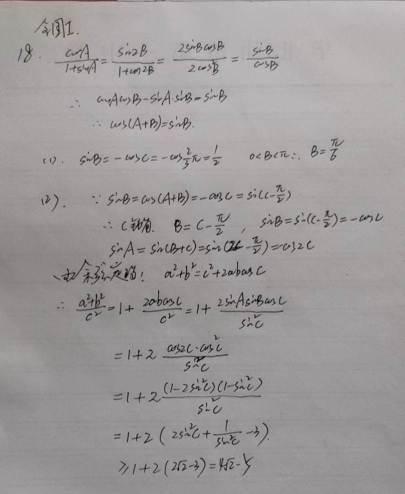 全国I.
18. cosA/(1+sinA) = sin2B/(1+cos2B) = 2sinBcosB/2cos²B = sinB/cosB
∴ cosAcosB-sinA·sinB=sinB
∴ cos(A+B)=sinB.
(1). sinB=-cosC=-cos2/3π=1/2 0<B<π∴ B=π/6
(2). ∵ sinB=cos(A+B)=-cosC=sin(C-π/2)
∴ C钝角. B=C-π/2, sinB=sin(C-π/2)=-cosC
sinA=sin(B+C)=sin(2C-π/2)=-cos2C
由余弦定理: a²+b²=c²+2abcosC
∴ (a²+b²)/c²=1+2abcosC/c²=1+2sinAsinBcosC/sin²C
=1+2 cos2C·cos²C/sin²C
=1+2 (1-2sin²C)(1-sin²C)/sin²C
=1+2(2sin²C+1/sin²C-3).
≥1+2(2√2-3)=4√2-5